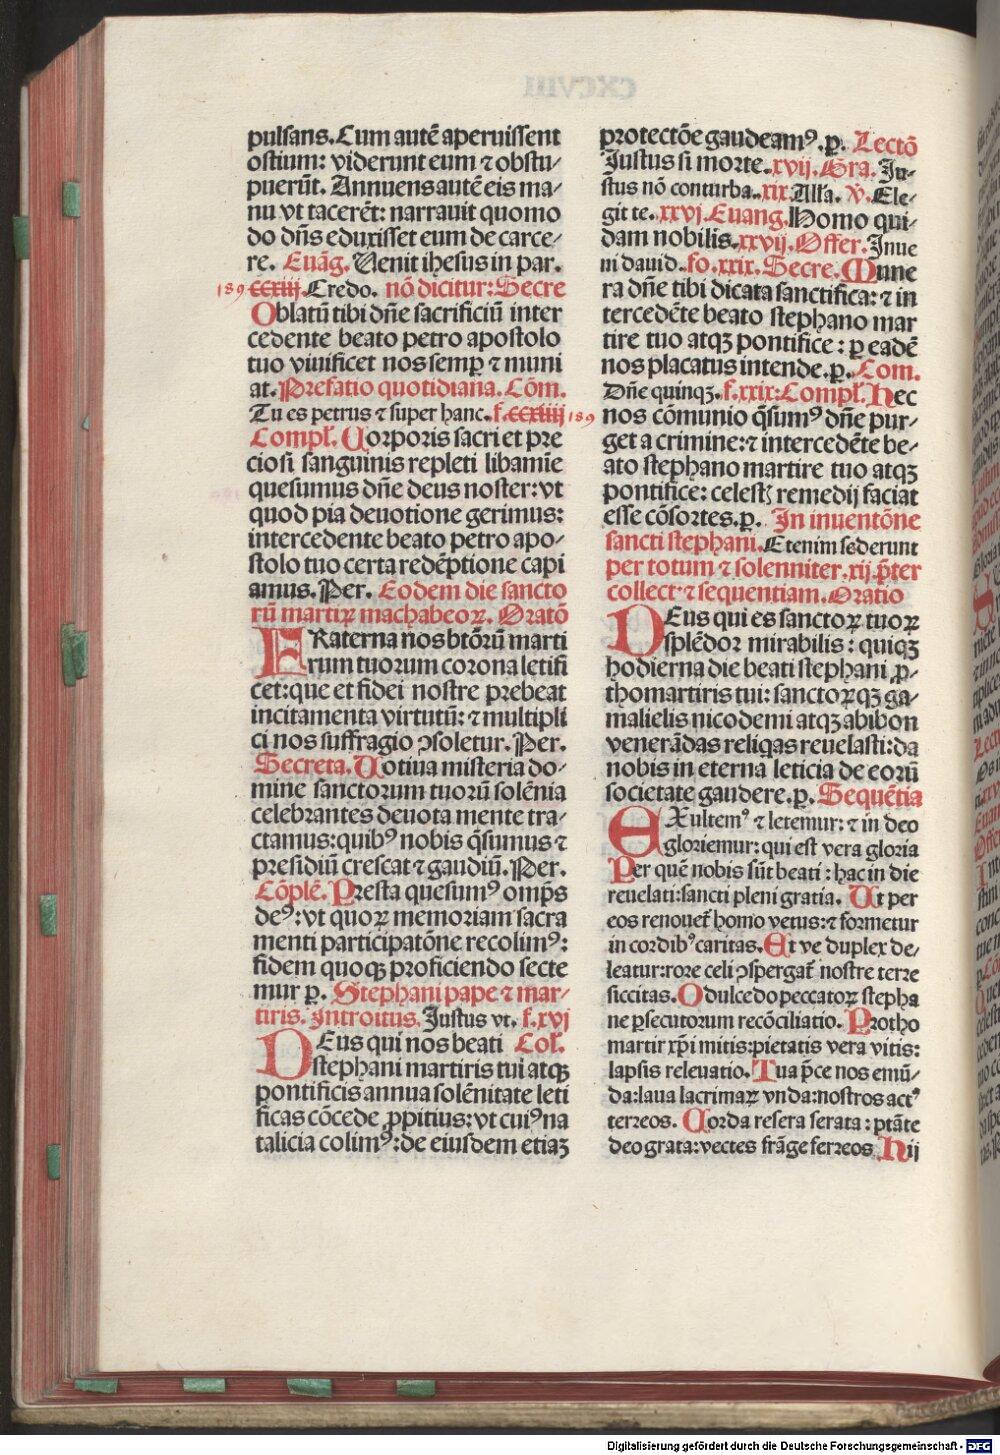 pulsans. Cum autē aperuissent
ostium: viderunt eum ⁊ obstu-
puerūt. Annuens autē eis ma-
nu vt tacerēt: narrauit quomo
do dn̄s eduxisset eum de carce-
re. Euāg. Uenit ihesus in par.
189 ccxiij. Credo. nō dicitur: Secre
Oblatū tibi dn̄e sacrificiū inter
cedente beato petro apostolo
tuo viuificet nos semꝑ ⁊ muni
at. Prefatio quotidiana. Cōm.
Tu es petrus ⁊ super hanc. f. ccxiiij 189
Compl̄. Corporis sacri et pre
ciosi sanguinis repleti libamīe
quesumus dn̄e deus noster: vt
quod pia deuotione gerimus:
intercedente beato petro apo-
stolo tuo certa redēptione capi
amus. Per. Eodem die sancto
rū martiꝝ machabeoꝝ. Oratō
FRaterna nos btōrū marti
rum tuorum corona letifi
cet: que et fidei nostre prebeat
incitamenta virtutū: ⁊ multipli
ci nos suffragio ↄsoletur. Per.
Secreta. Uotiua misteria do-
mine sanctorum tuorū solēnia
celebrantes deuota mente tra-
ctamus: quibꝰ nobis q̄sumus ⁊
presidiū crescat ⁊ gaudiū. Per.
Cōplē. Presta quesumꝰ omp̄s
deꝰ: vt quoꝝ memoriam sacra
menti participatōne recolimꝰ:
fidem quoqꝫ proficiendo secte
mur p. Stephani pape ⁊ mar-
tiris. Introitus. Justus vt. f. xvj
DEus qui nos beati Col̄.
stephani martiris tui atqꝫ
pontificis annua solēnitate leti
ficas cōcede ꝓpitius: vt cuiꝰ na
talicia colimꝰ: de eiusdem etiaꝫ
protectōe gaudeamꝰ. p. Lectō
Justus si morte. xvij. Gra. Ju-
stus nō conturba. xix. All̄a. v̄. Ele-
git te. xxvj. Euang. Homo qui-
dam nobilis. xxvij. Offer. Inue
ni dauid. fo. xxix. Secre. Mune
ra dn̄e tibi dicata sanctifica: ⁊ in
tercedēte beato stephano mar
tire tuo atqꝫ pontifice: ꝑ eadē
nos placatus intende. p. Com.
Dn̄e quinqꝫ. f. xxix: Compl̄. Hec
nos cōmunio q̄sumꝰ dn̄e pur-
get a crimine: ⁊ intercedēte be-
ato stephano martire tuo atqꝫ
pontifice: celestꝭ remedij faciat
esse cōsortes. p. In inuentōne
sancti stephani. Etenim sederunt
per totum ⁊ solenniter. xij. p̄ter
collect. ⁊ sequentiam. Oratio
DEus qui es sanctoꝝ tuoꝝ
splēdor mirabilis: quiqꝫ
hodierna die beati stephani ꝓ-
thomartiris tui: sanctoꝝqꝫ ga-
malielis nicodemi atqꝫ abibon
venerādas reliqas reuelasti: da
nobis in eterna leticia de eorū
societate gaudere. p. Sequētia
EXultemꝰ ⁊ letemur: ⁊ in deo
gloriemur: qui est vera gloria
Per quē nobis sūt beati: hac in die
reuelati: sancti pleni gratia. Ut per
eos renouet̄ homo vetus: ⁊ formetur
in cordibꝰ caritas. Et ve duplex de-
leatur: rore celi ↄspergat̄ nostre terre
siccitas. O dulcedo peccatoꝝ stepha
ne ꝑsecutorum recōciliatio. Protho
martir xp̄i mitis: pietatis vera vitis:
lapsis releuatio. Tua p̄ce nos emū-
da: laua lacrimaꝝ vnda: nostros actꝰ
terreos. Corda resera serata: ptāte
deo grata: vectes frāge ferreos. Hij